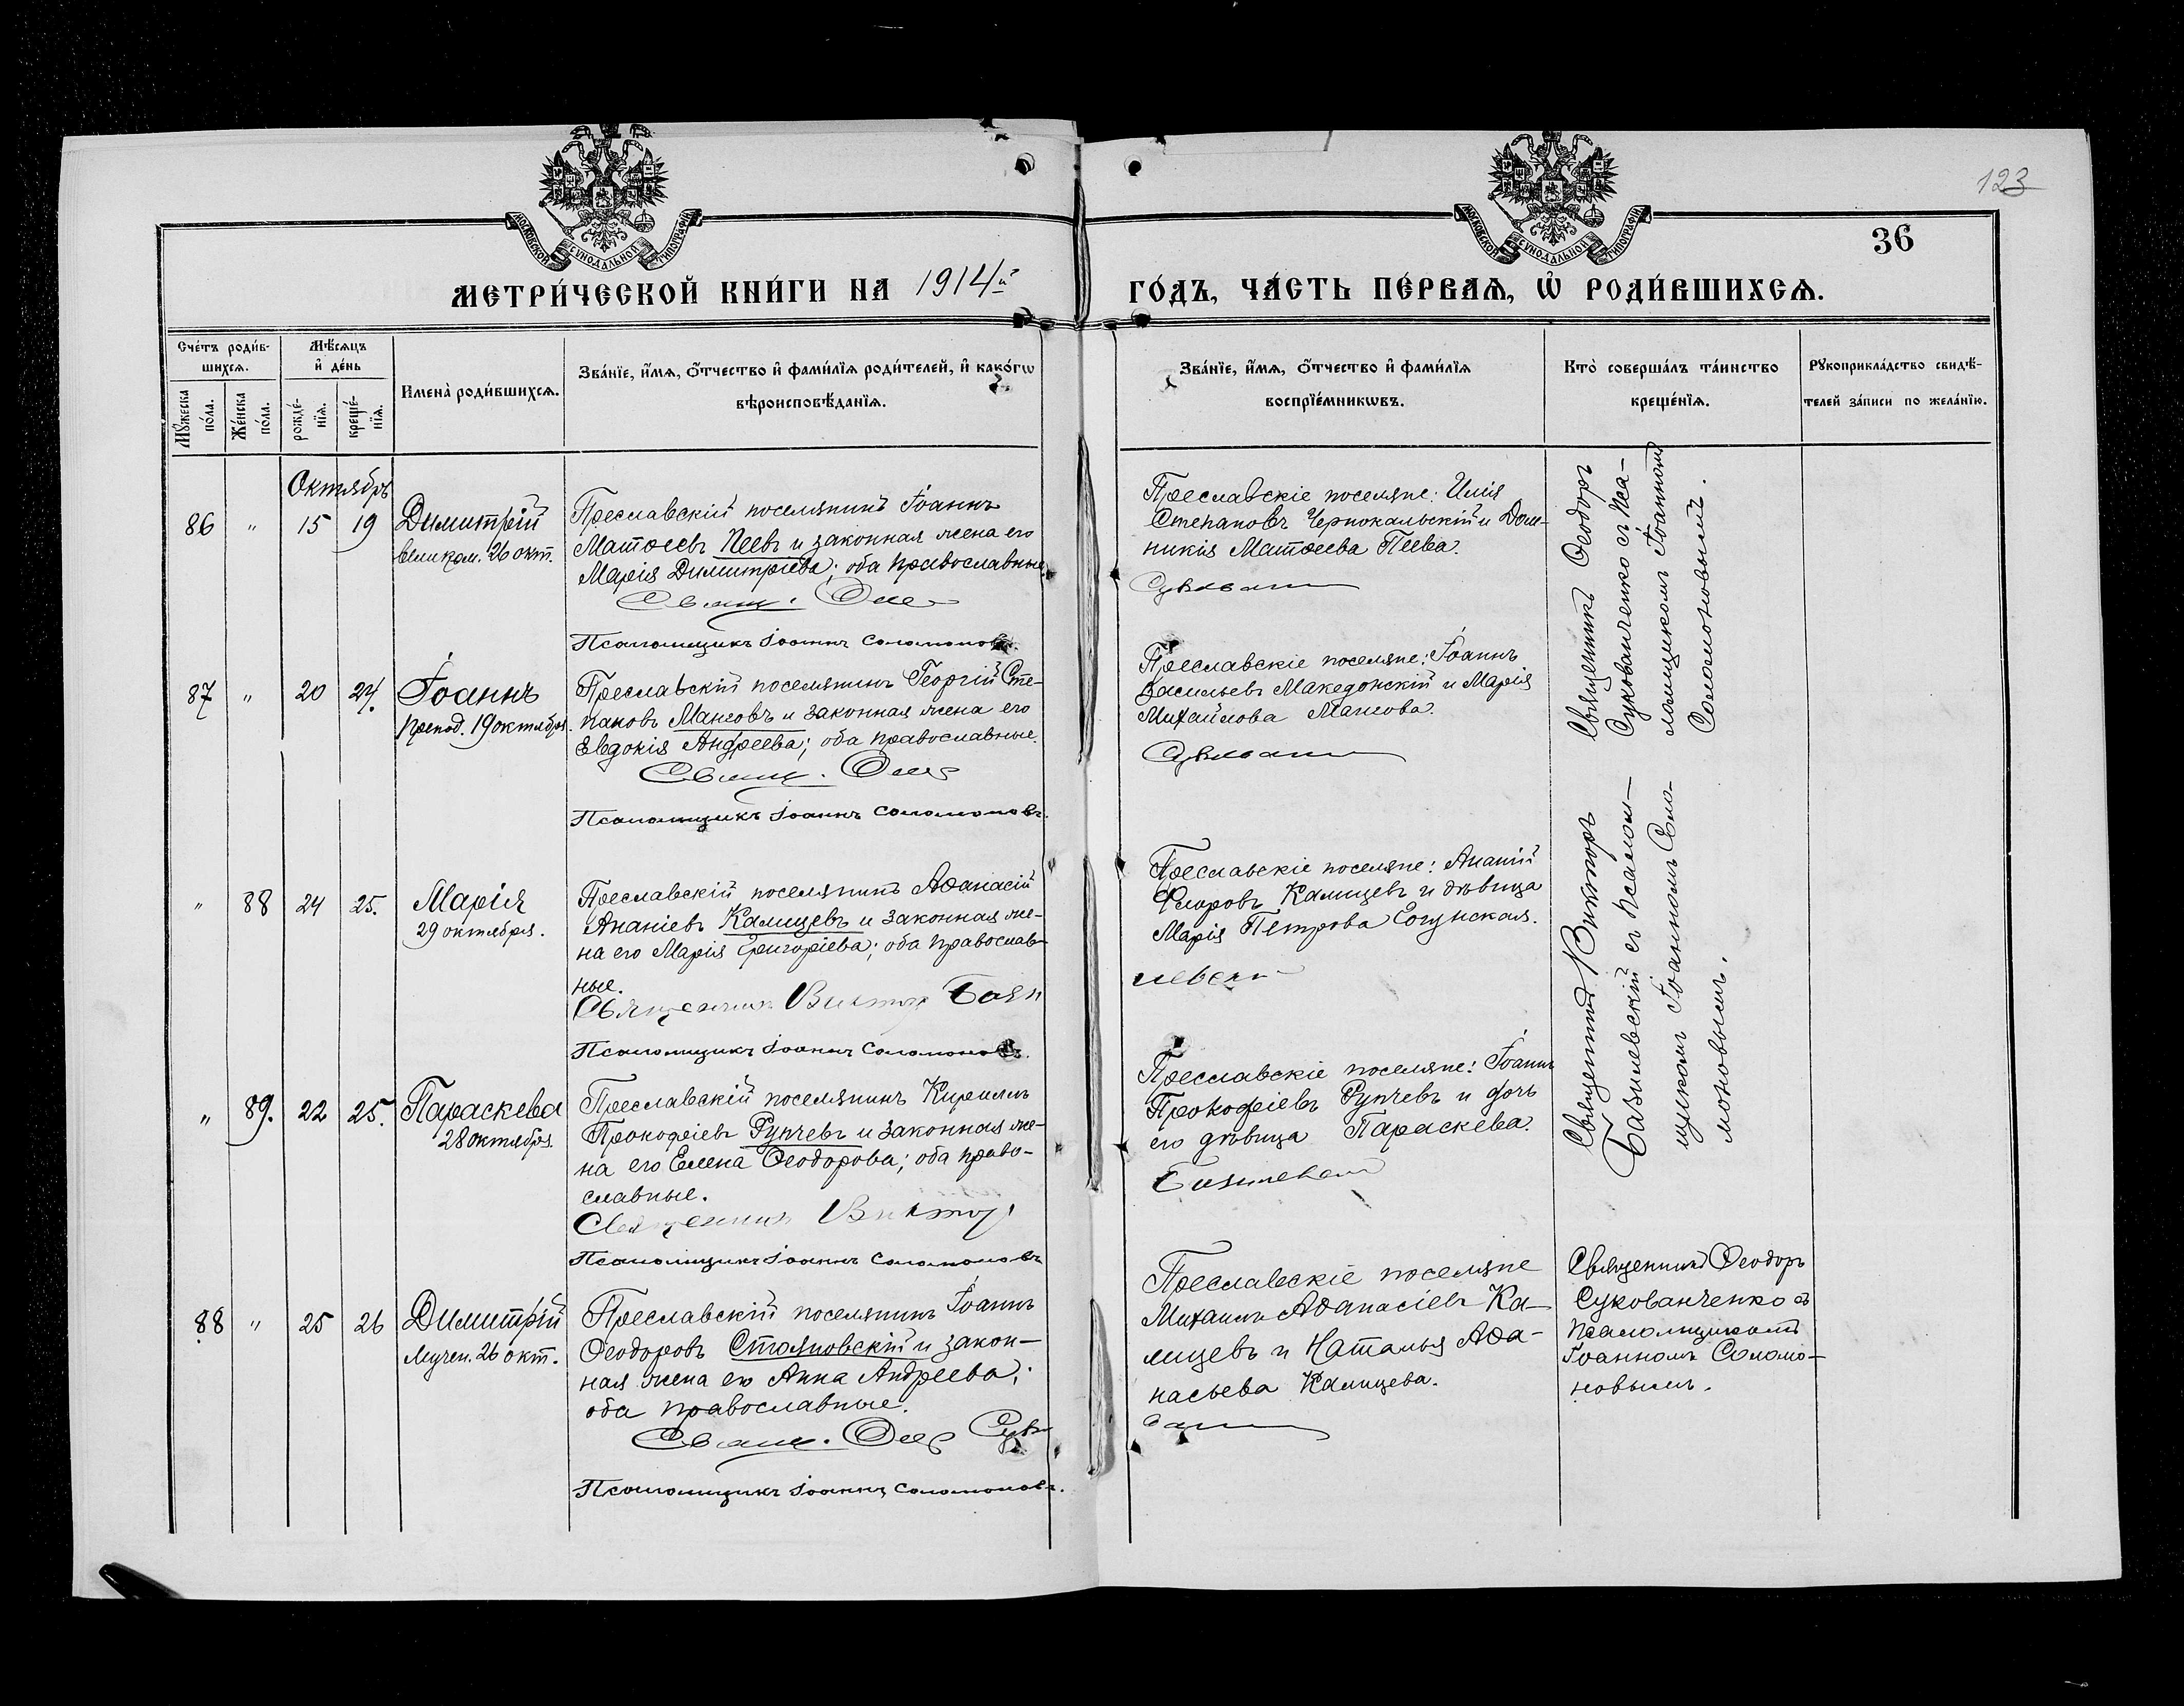 123
36
МОСКОВСКОЙ СѴНОДАЛЬНОЙ ТИПОГРАФІИ
МОСКОВСКОЙ СѴНОДАЛЬНОЙ ТИПОГРАФІИ
МЕТРИ́ЧЕСКОЙ КНИ́ГИ НА 1914й ГО́ДЪ, ЧА́СТЬ ПЕ́РВАѦ, Ѡ҆ РОДИ́ВШИХСѦ.
Сче́тъ роди́в-
шихсѧ.
Мꙋ́жеска по́ла.
Же́нска по́ла.
Мѣ́сѧцъ
и҆ де́нь
рожде́-
нїѧ.
креще́-
нїѧ.
И҆мена̀ роди́вшихсѧ.
Зва́нїе, и҆́мѧ, ѻ҆́тчество и҆ фами́лїѧ роди́телей, и҆ како́гѡ
вѣроисповѣ́данїѧ.
Зва́нїе, и҆́мѧ, ѻ҆́тчество и҆ фами́лїѧ
воспрїе́мникѡвъ.
Кто̀ соверша́лъ та́инство
креще́нїѧ.
Рꙋкоприкла́дство свидѣ́-
телей за́писи по жела́нїю.
Октябрь
86 " 15 19 Димитрій
великом. 26 окт.
Преславскій поселянинъ Іоаннъ
Матѳеевъ Пеевъ и законная жена его
Марія Димитріева; оба православные
Свящ. Ѳео
Псаломщикъ Іоаннъ Соломоновъ.
Преславскіе поселяне: Илія
Степановъ Чернокальскій и Дом-
никія Матѳеева Пеева.
Священникъ Ѳеодоръ
Сукованченко съ Пса-
ломщикомъ Іоанномъ
Соломоновымъ.
87 " 20 24. Іоаннъ
препод. 19 октября.
Преславскій поселянинъ Георгій Сте-
пановъ Манговъ и законная жена его
Евдокія Андреева; оба православные.
Свящ. Ѳео
Псаломщикъ Іоаннъ Соломоновъ.
Преславскіе поселяне: Іоаннъ
Васильевъ Македонскій и Марія
Михайлова Мангова.
" 88 24 25. Марія
29 октября.
Преславскій поселянинъ Аѳанасій
Ананіевъ Калицевъ и законная же-
на его Марія Григоріева; оба православ-
ные.
Священникъ Викторъ Бази
Псаломщикъ Іоаннъ Соломоновъ.
Преславскіе поселяне: Ананій
Флоровъ Калицевъ и дѣвица
Марія Петрова
левскій
Священникъ Викторъ
Базилевскій съ Псалом-
щикомъ Іоанномъ Соло-
моновымъ.
" 89. 22 25. Параскева
28 октября.
Преславскій поселянинъ Кириллъ
Прокофіевъ Рупчевъ и законная же-
на его Елена Ѳеодорова; оба право-
славные.
Священникъ Викторъ
Псаломщикъ Іоаннъ Соломоновъ
Преславскіе поселяне: Іоаннъ
Прокофіевъ Рупчевъ и дочь
его дѣвица Параскева.
Базилевскій
88 " 25 26 Димитрій
Мучен. 26 окт.
Преславскій поселянинъ Іоаннъ
Ѳеодоровъ Стояновскій и закон-
ная жена его Анна Андреева;
оба православные.
Свящ. Ѳео Сук
Псаломщикъ Іоаннъ Соломоновъ.
Преславскіе поселяне
Михаилъ Аѳанасіевъ Ка-
лицевъ и Наталья Аѳа-
насьева Калицева.
Священникъ Ѳеодоръ
Сукованченко съ
псаломщикомъ
Іоанномъ Соломо-
новымъ.